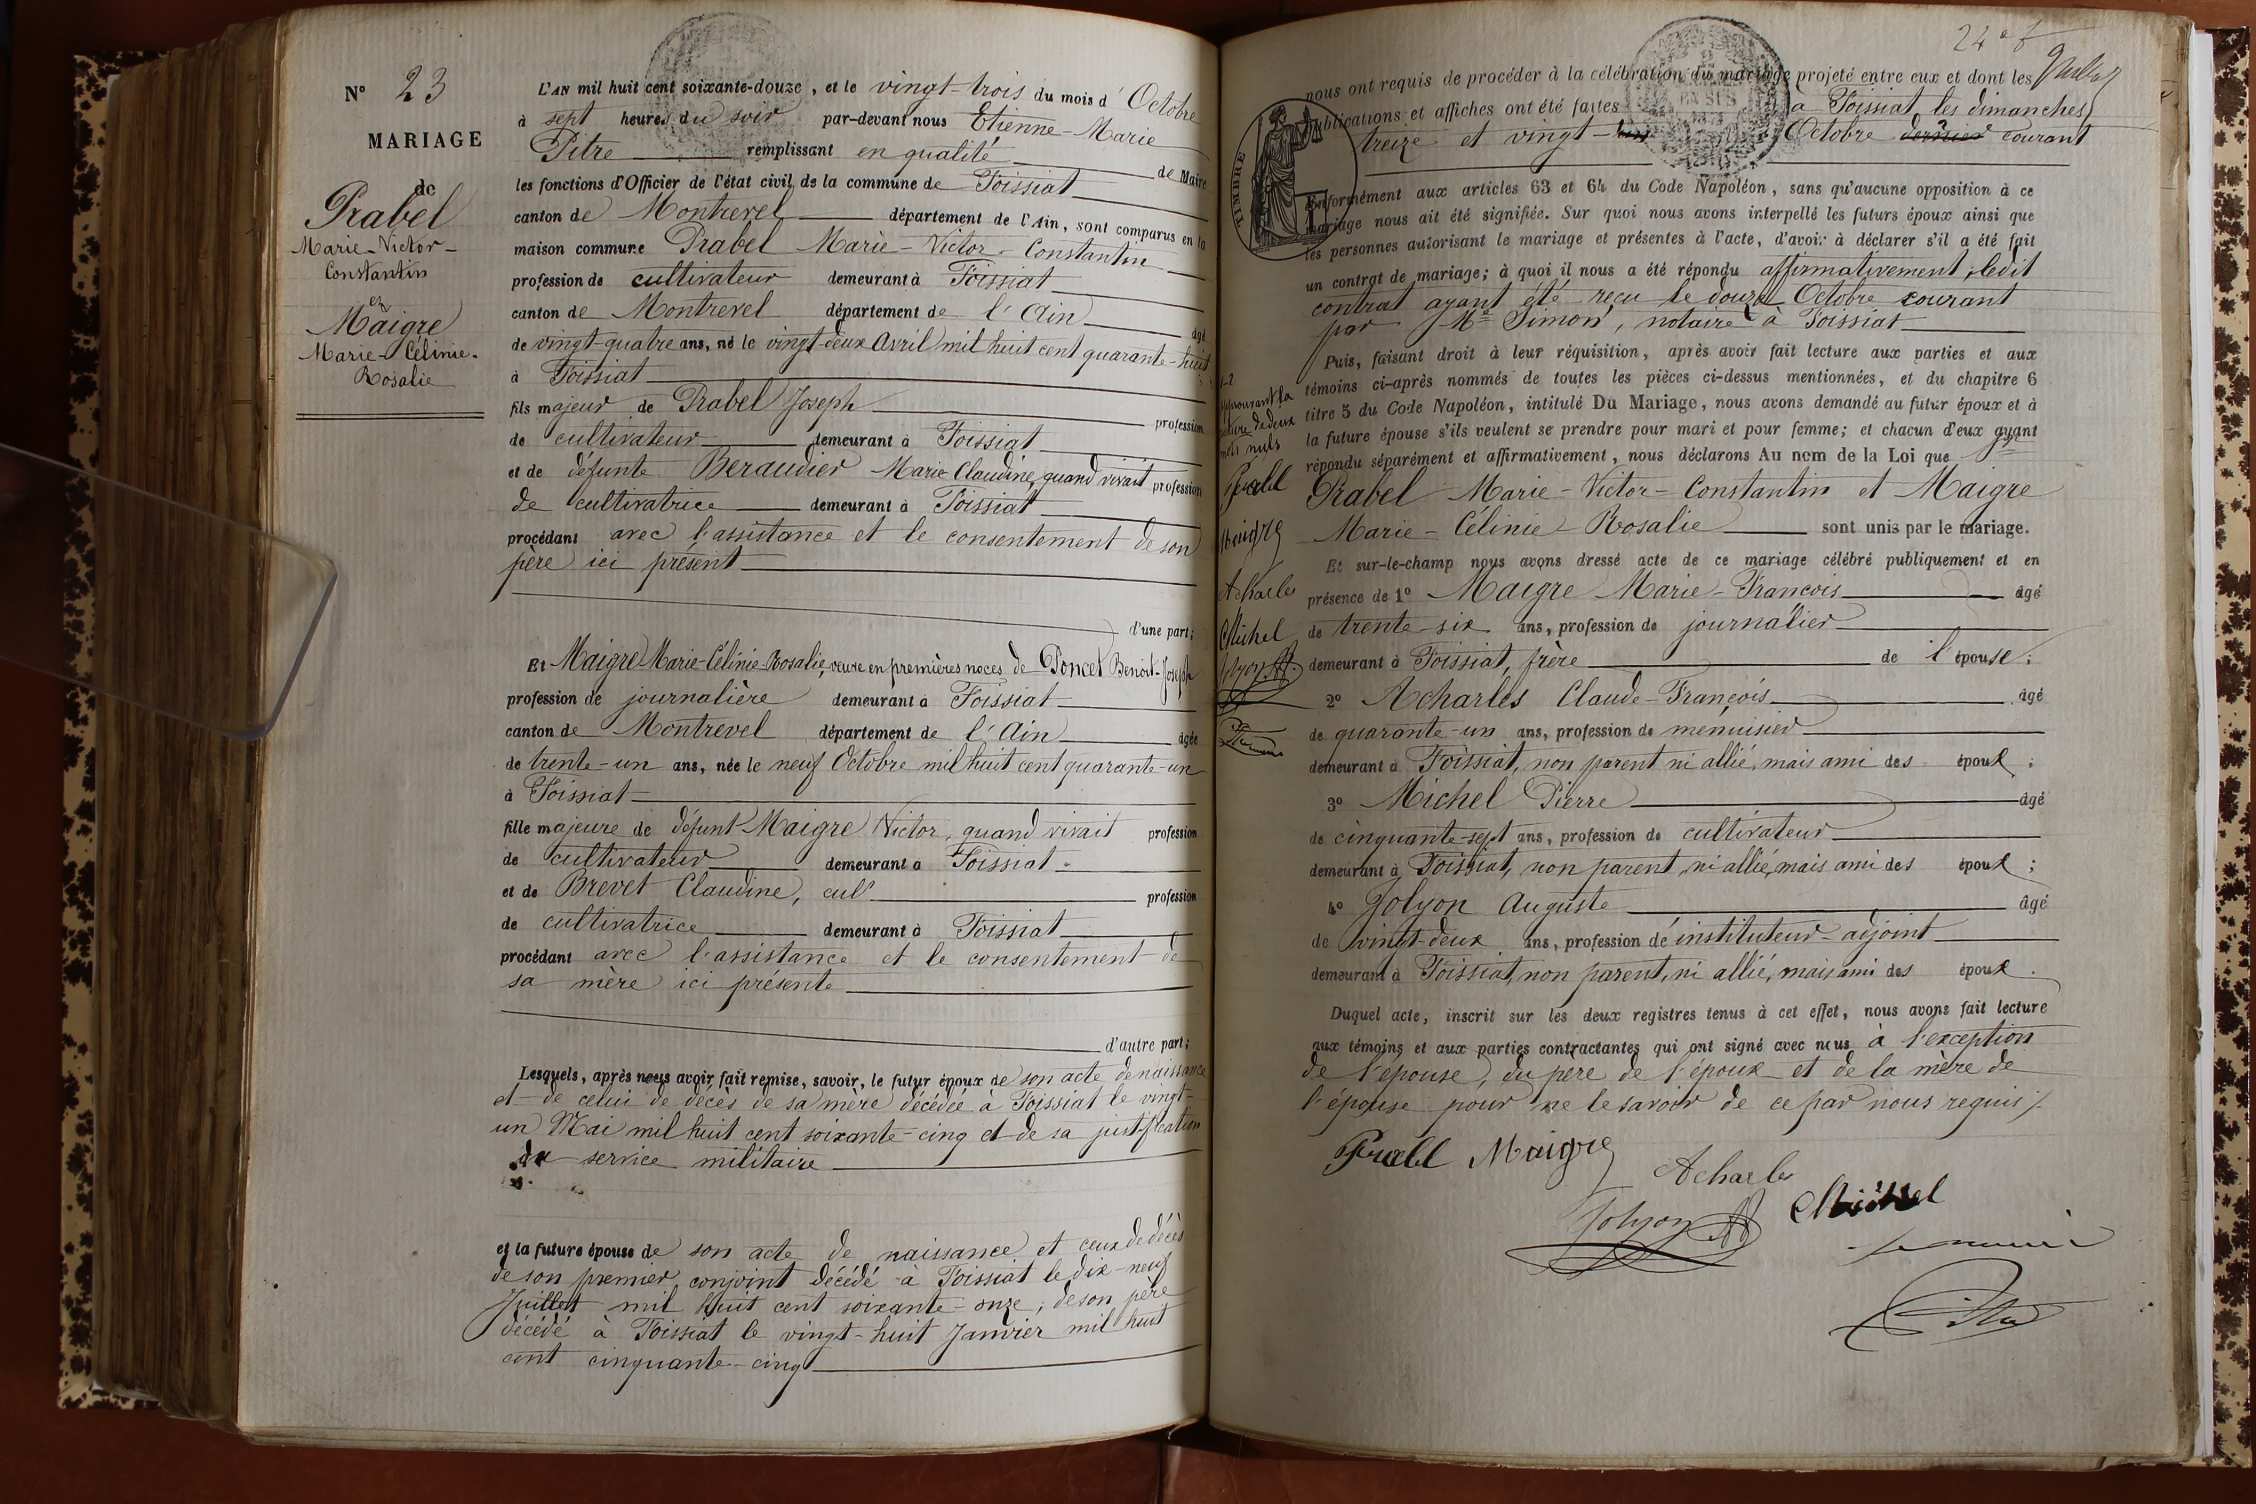 N° 23
MARIAGE
de
Prabel
Marie-Victor-
Constantin
et
Maigre
Marie-Célinie-
Rosalie
L'AN mil huit cent soixante-douze, et le vingt-trois du mois d'Octobre
à sept heures du soir par-devant nous Etienne-Marie
Pitre remplissant en qualité de Maire
les fonctions d'Officier de l'état civil de la commune de Foissiat
canton de Montrevel département de l'Ain, sont comparus en la
maison commune Prabel Marie-Victor-Constantin
profession de cultivateur demeurant à Foissiat
canton de Montrevel département de l'Ain âgé
de vingt-quatre ans, né le vingt-deux Avril mil huit cent quarante-huit
à Foissiat
fils majeur de Prabel Joseph profession
de cultivateur demeurant à Foissiat
et de défunte Beraudier Marie Claudine, quand vivait profession
de cultivatrice demeurant à Foissiat
procédant avec l'assistance et le consentement de son
père ici présent
d'une part;
Et Maigre Marie-Célinie-Rosalie, veuve en premières noces de Poncet Benoit-Joseph
profession de journalière demeurant à Foissiat
canton de Montrevel département de l'Ain âgée
de trente-un ans, née le neuf Octobre mil huit cent quarante-un
à Foissiat
fille majeure de défunt Maigre Victor, quand vivait profession
de cultivateur demeurant à Foissiat
et de Brevet Claudine, cult profession
de cultivatrice demeurant à Foissiat
procédant avec l'assistance et le consentement de
sa mère ici présente
d'autre part;
Lesquels, après nous avoir fait remise, savoir, le futur époux de son acte de naissance
et de celui de décès de sa mère décédée à Foissiat le vingt-
un Mai mil huit cent soixante-cinq et de sa justification
du service militaire
et la future épouse de son acte de naissance et ceux de décès
de son premier conjoint décédé à Foissiat le dix-neuf
Juillet mil huit cent soixante-onze; de son père
décédé à Foissiat le vingt-huit Janvier mil huit
cent cinquante-cinq
24e f
nous ont requis de procéder à la célébration du mariage projeté entre eux et dont les
publications et affiches ont été faites à Foissiat les dimanches
treize et vingt Octobre dernier courant
TIMBRE
conformément aux articles 63 et 64 du Code Napoléon, sans qu'aucune opposition à ce
mariage nous ait été signifiée. Sur quoi nous avons interpellé les futurs époux ainsi que
les personnes autorisant le mariage et présentes à l'acte, d'avoir à déclarer s'il a été fait
un contrat de mariage; à quoi il nous a été répondu affirmativement, ledit
contrat ayant été reçu le douze Octobre courant
par Me Simon, notaire à Foissiat
Puis, faisant droit à leur réquisition, après avoir fait lecture aux parties et aux
témoins ci-après nommés de toutes les pièces ci-dessus mentionnées, et du chapitre 6
titre 5 du Code Napoléon, intitulé Du Mariage, nous avons demandé au futur époux et à
la future épouse s'ils veulent se prendre pour mari et pour femme; et chacun d'eux ayant
répondu séparément et affirmativement, nous déclarons Au nom de la Loi que
Prabel Marie-Victor-Constantin et Maigre
Marie-Célinie-Rosalie sont unis par le mariage.
Et sur-le-champ nous avons dressé acte de ce mariage célébré publiquement et en
présence de 1° Maigre Marie-François âgé
de trente-six ans, profession de journalier
demeurant à Foissiat, frère de l'épouse;
2° Acharles Claude-François âgé
de quarante-un ans, profession de menuisier
demeurant à Foissiat, non parent ni allié, mais ami des époux;
3° Michel Pierre âgé
de cinquante-sept ans, profession de cultivateur
demeurant à Foissiat, non parent, ni allié, mais ami des époux;
4° Jolyon Auguste âgé
de vingt-deux ans, profession d'instituteur-adjoint
demeurant à Foissiat, non parent, ni allié, mais ami des époux.
Duquel acte, inscrit sur les deux registres tenus à cet effet, nous avons fait lecture
aux témoins et aux parties contractantes qui ont signé avec nous à l'exception
de l'épouse, du père de l'époux et de la mère de
l'épouse pour ne le savoir de ce par nous requis
Prabel Maigre
Acharles
Jolyon Michel
Le maire
Pitre
approuvant la
rature de deux
mots nuls
Prabel
Maigre
Acharles
Michel
Jolyon